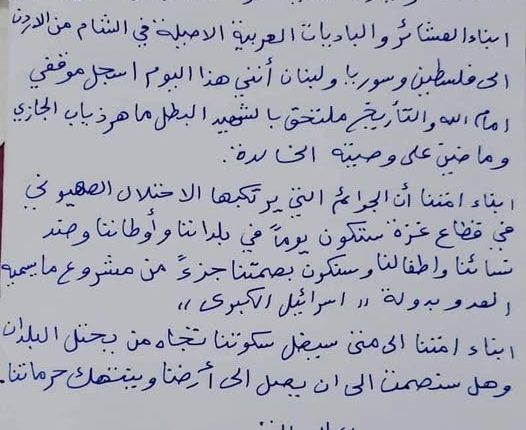 ابناء العشائر والباديات العربية الاصيلة في الشام من الاردن
الى فلسطين وسوريا ولبنان أنني هذا اليوم اسجل موقفي
امام الله والتأريخ ملتحق بالشهيد البطل ماهر ذياب الجازي
وماضين على وصيته الخالدة.
ابناء امتنا أن الجرائم التي يرتكبها الاحتلال الصهيوني
في قطاع غزة ستكون يوماً في بلداننا وأوطاننا وضد
نسائنا واطفالنا وستكون بصمتنا جزءً من مشروع ما يسميه
العدو بدولة "اسرائيل الكبرى"
ابناء امتنا الى متى سيظل سكوتنا تجاه من يحتل البلدان
وهل سنصمت الى ان يصل الى أرضنا وينتهك حرماتنا.